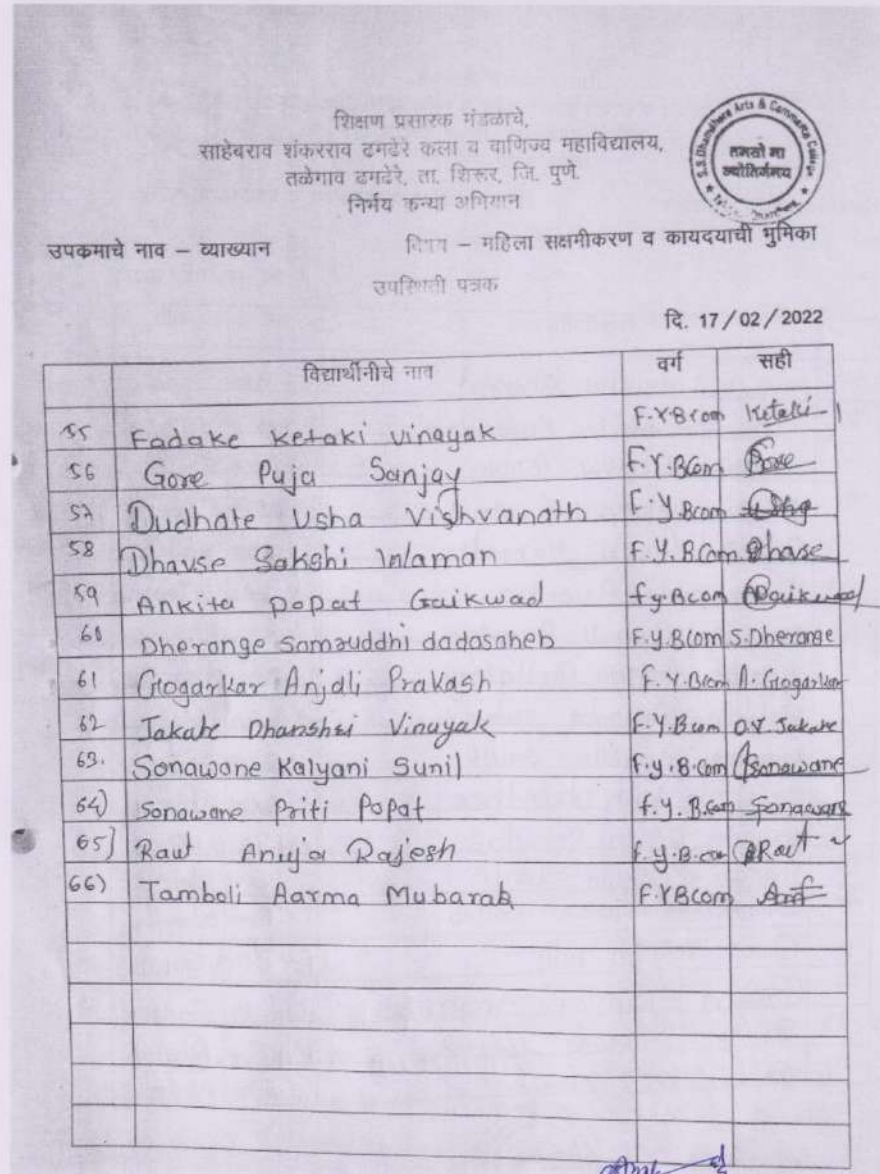 शिक्षण प्रसारक मंडळाचे,
साहेबराव शंकरराव ढमढेरे कला व वाणिज्य महाविद्यालय,
तळेगाव ढमढेरे, ता. शिरूर, जि. पुणे.
निर्भय कन्या अभियान
S.S.Dhamdhere Arts & Commerce College
तमसो मा
ज्योतिर्गमय
उपकमाचे नाव – व्याख्यान विषय – महिला सक्षमीकरण व कायदयाची भुमिका
उपस्थिती पत्रक
दि. 17/02/2022
विद्यार्थीनीचे नाव वर्ग सही
55 Fadake Ketaki Vinayak F.Y.Bcom Ketaki
56 Gore Puja Sanjay F.Y.BCom Gore
57 Dudhate Usha Vishvanath F.Y.Bcom
58 Dhavse Sakshi Waman F.Y.BCom Dhavse
59 Ankita popat Gaikwad f.y.Bcom Gaikwad
60 Dherange Samruddhi dadasaheb F.Y.BCom S.Dherange
61 Gogarkar Anjali Prakash F.Y.Bcom A.Gogarkar
62 Jakate Dhanshri Vinayak F.Y.Bcom D.V.Jakate
63. Sonawane Kalyani Sunil F.y.B.Com Sonawane
64) Sonawane Priti Popat f.y.B.com Sonawane
65) Raut Anuja Rajesh f.y.B.com Raut
66) Tamboli Aarma Mubarak F.YBCom